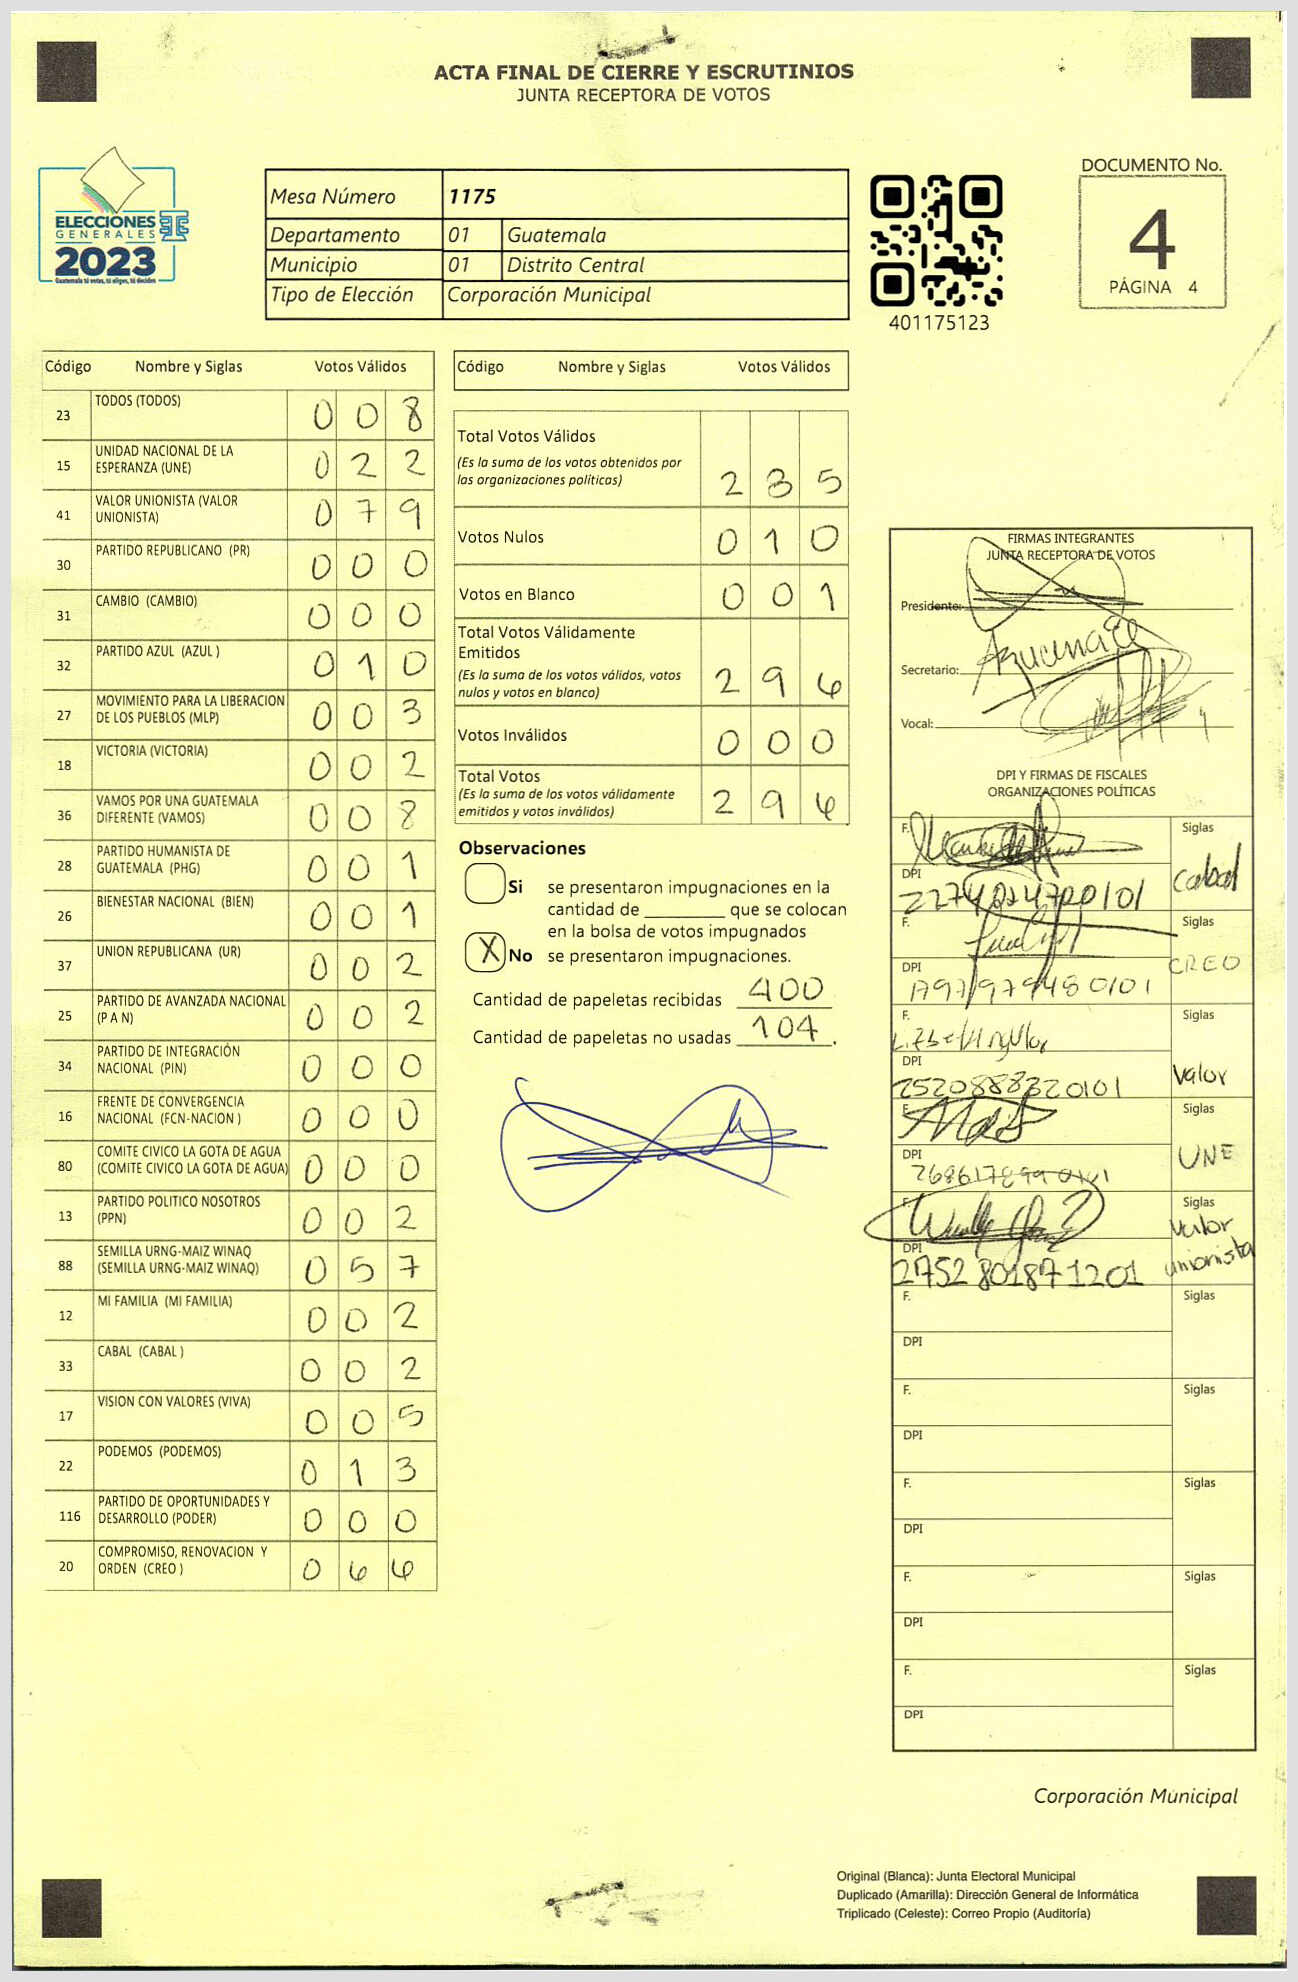 ACTA FINAL DE CIERRE Y ESCRUTINIOS
JUNTA RECEPTORA DE VOTOS
ELECCIONES
GENERALES
2023
Guatemala tú votas, tú eliges, tú decides
Mesa Número 1175
Departamento 01 Guatemala
Municipio 01 Distrito Central
Tipo de Elección Corporación Municipal
401175123
DOCUMENTO No.
4
PÁGINA 4
Código Nombre y Siglas Votos Válidos
23 TODOS (TODOS) 0 0 8
15 UNIDAD NACIONAL DE LA ESPERANZA (UNE) 0 2 2
41 VALOR UNIONISTA (VALOR UNIONISTA) 0 7 9
30 PARTIDO REPUBLICANO (PR) 0 0 0
31 CAMBIO (CAMBIO) 0 0 0
32 PARTIDO AZUL (AZUL ) 0 1 0
27 MOVIMIENTO PARA LA LIBERACION DE LOS PUEBLOS (MLP) 0 0 3
18 VICTORIA (VICTORIA) 0 0 2
36 VAMOS POR UNA GUATEMALA DIFERENTE (VAMOS) 0 0 8
28 PARTIDO HUMANISTA DE GUATEMALA (PHG) 0 0 1
26 BIENESTAR NACIONAL (BIEN) 0 0 1
37 UNION REPUBLICANA (UR) 0 0 2
25 PARTIDO DE AVANZADA NACIONAL (P A N) 0 0 2
34 PARTIDO DE INTEGRACIÓN NACIONAL (PIN) 0 0 0
16 FRENTE DE CONVERGENCIA NACIONAL (FCN-NACION ) 0 0 0
80 COMITE CIVICO LA GOTA DE AGUA (COMITE CIVICO LA GOTA DE AGUA) 0 0 0
13 PARTIDO POLITICO NOSOTROS (PPN) 0 0 2
88 SEMILLA URNG-MAIZ WINAQ (SEMILLA URNG-MAIZ WINAQ) 0 5 7
12 MI FAMILIA (MI FAMILIA) 0 0 2
33 CABAL (CABAL ) 0 0 2
17 VISION CON VALORES (VIVA) 0 0 5
22 PODEMOS (PODEMOS) 0 1 3
116 PARTIDO DE OPORTUNIDADES Y DESARROLLO (PODER) 0 0 0
20 COMPROMISO, RENOVACION Y ORDEN (CREO ) 0 6 6
Código Nombre y Siglas Votos Válidos
Total Votos Válidos
(Es la suma de los votos obtenidos por
las organizaciones políticas) 2 8 5
Votos Nulos 0 1 0
Votos en Blanco 0 0 1
Total Votos Válidamente
Emitidos
(Es la suma de los votos válidos, votos
nulos y votos en blanco) 2 9 6
Votos Inválidos 0 0 0
Total Votos
(Es la suma de los votos válidamente
emitidos y votos inválidos) 2 9 6
Observaciones
Si se presentaron impugnaciones en la
cantidad de ________ que se colocan
en la bolsa de votos impugnados
X No se presentaron impugnaciones.
Cantidad de papeletas recibidas 400
Cantidad de papeletas no usadas 104.
FIRMAS INTEGRANTES
JUNTA RECEPTORA DE VOTOS
Presidente:
Secretario: Azucena
Vocal:
DPI Y FIRMAS DE FISCALES
ORGANIZACIONES POLÍTICAS
F. Siglas
DPI cabal
F. Siglas
DPI CREO
F. Siglas
DPI Valor
2520888320101
F. Siglas
DPI UNE
F. Siglas
DPI Valor unionista
2752801871201
F. Siglas
DPI
F. Siglas
DPI
F. Siglas
DPI
F. Siglas
DPI
F. Siglas
DPI
Corporación Municipal
Original (Blanca): Junta Electoral Municipal
Duplicado (Amarilla): Dirección General de Informática
Triplicado (Celeste): Correo Propio (Auditoría)